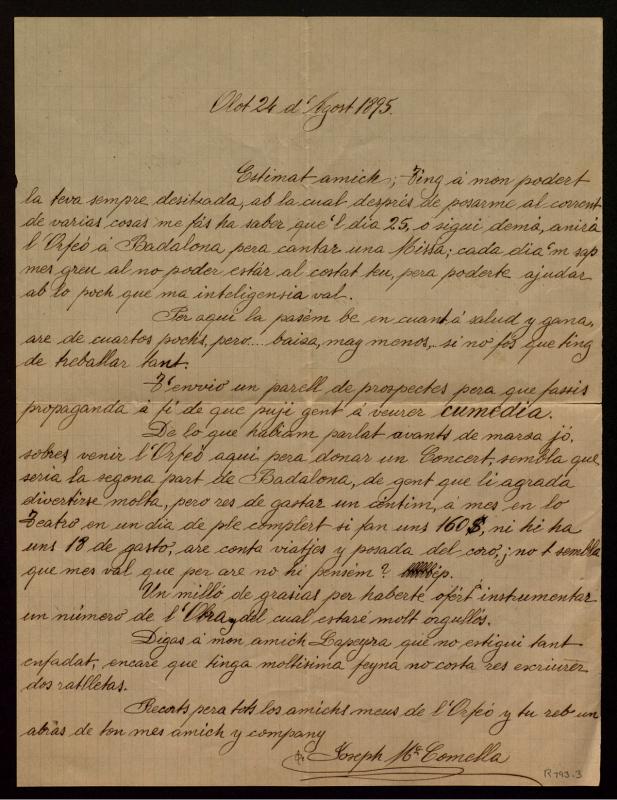 Olot 24 d'Agost 1895.
Estimat amich; Ting á mon podert
la teva sempre desitxada, ab la cual desprès de posarme al corrent
de varias cosas me fás ha saber que'l dia 25, o sigui demá, anirá
l'Orfeó á Badalona pera cantar una Missa; cada dia'm sap
mes greu al no poder estár al costat teu, pera poderte ajudar
ab lo poch que ma inteligensia val.
Per aqui la pasém be en cuant á salud y gana,
are de cuartos pochs, pero... baixa, may menos,.. si no fos que ting
de treballar tant.
T'envvio un parell de prospectes pera que fassis
propaganda á fi de que puji gent á veurer cumédia.
De lo que habiam parlat avants de marxa jó,
sobres venir l'Orfeó aqui pera donar un Concert, sembla que
seria la segona part de Badalona, de gent que li agrada
divertirse molta, pero res de gastar un céntim, á mes en lo
Teatro en un dia de ple complert si fan uns 160$, ni hi ha
uns 18 de gasto, are conta viatjes y posada del coro, ¡no t sembla
que mes val que per are no hi pensém?
Un milló de grasias per haberte ofért instrumentar
un número de l'Obra, del cual estaré molt orgullós.
Digas á mon amich Lapeyra que no estigui tant
enfadat, encare que tinga moltisima feyna no costa res escriurer
dos ratlletas.
Recorts pera tots los amichs meus de l'Orfeó y tu reb un
abrás de ton mes amich y company
Joseph Mª Comella
R 793-3